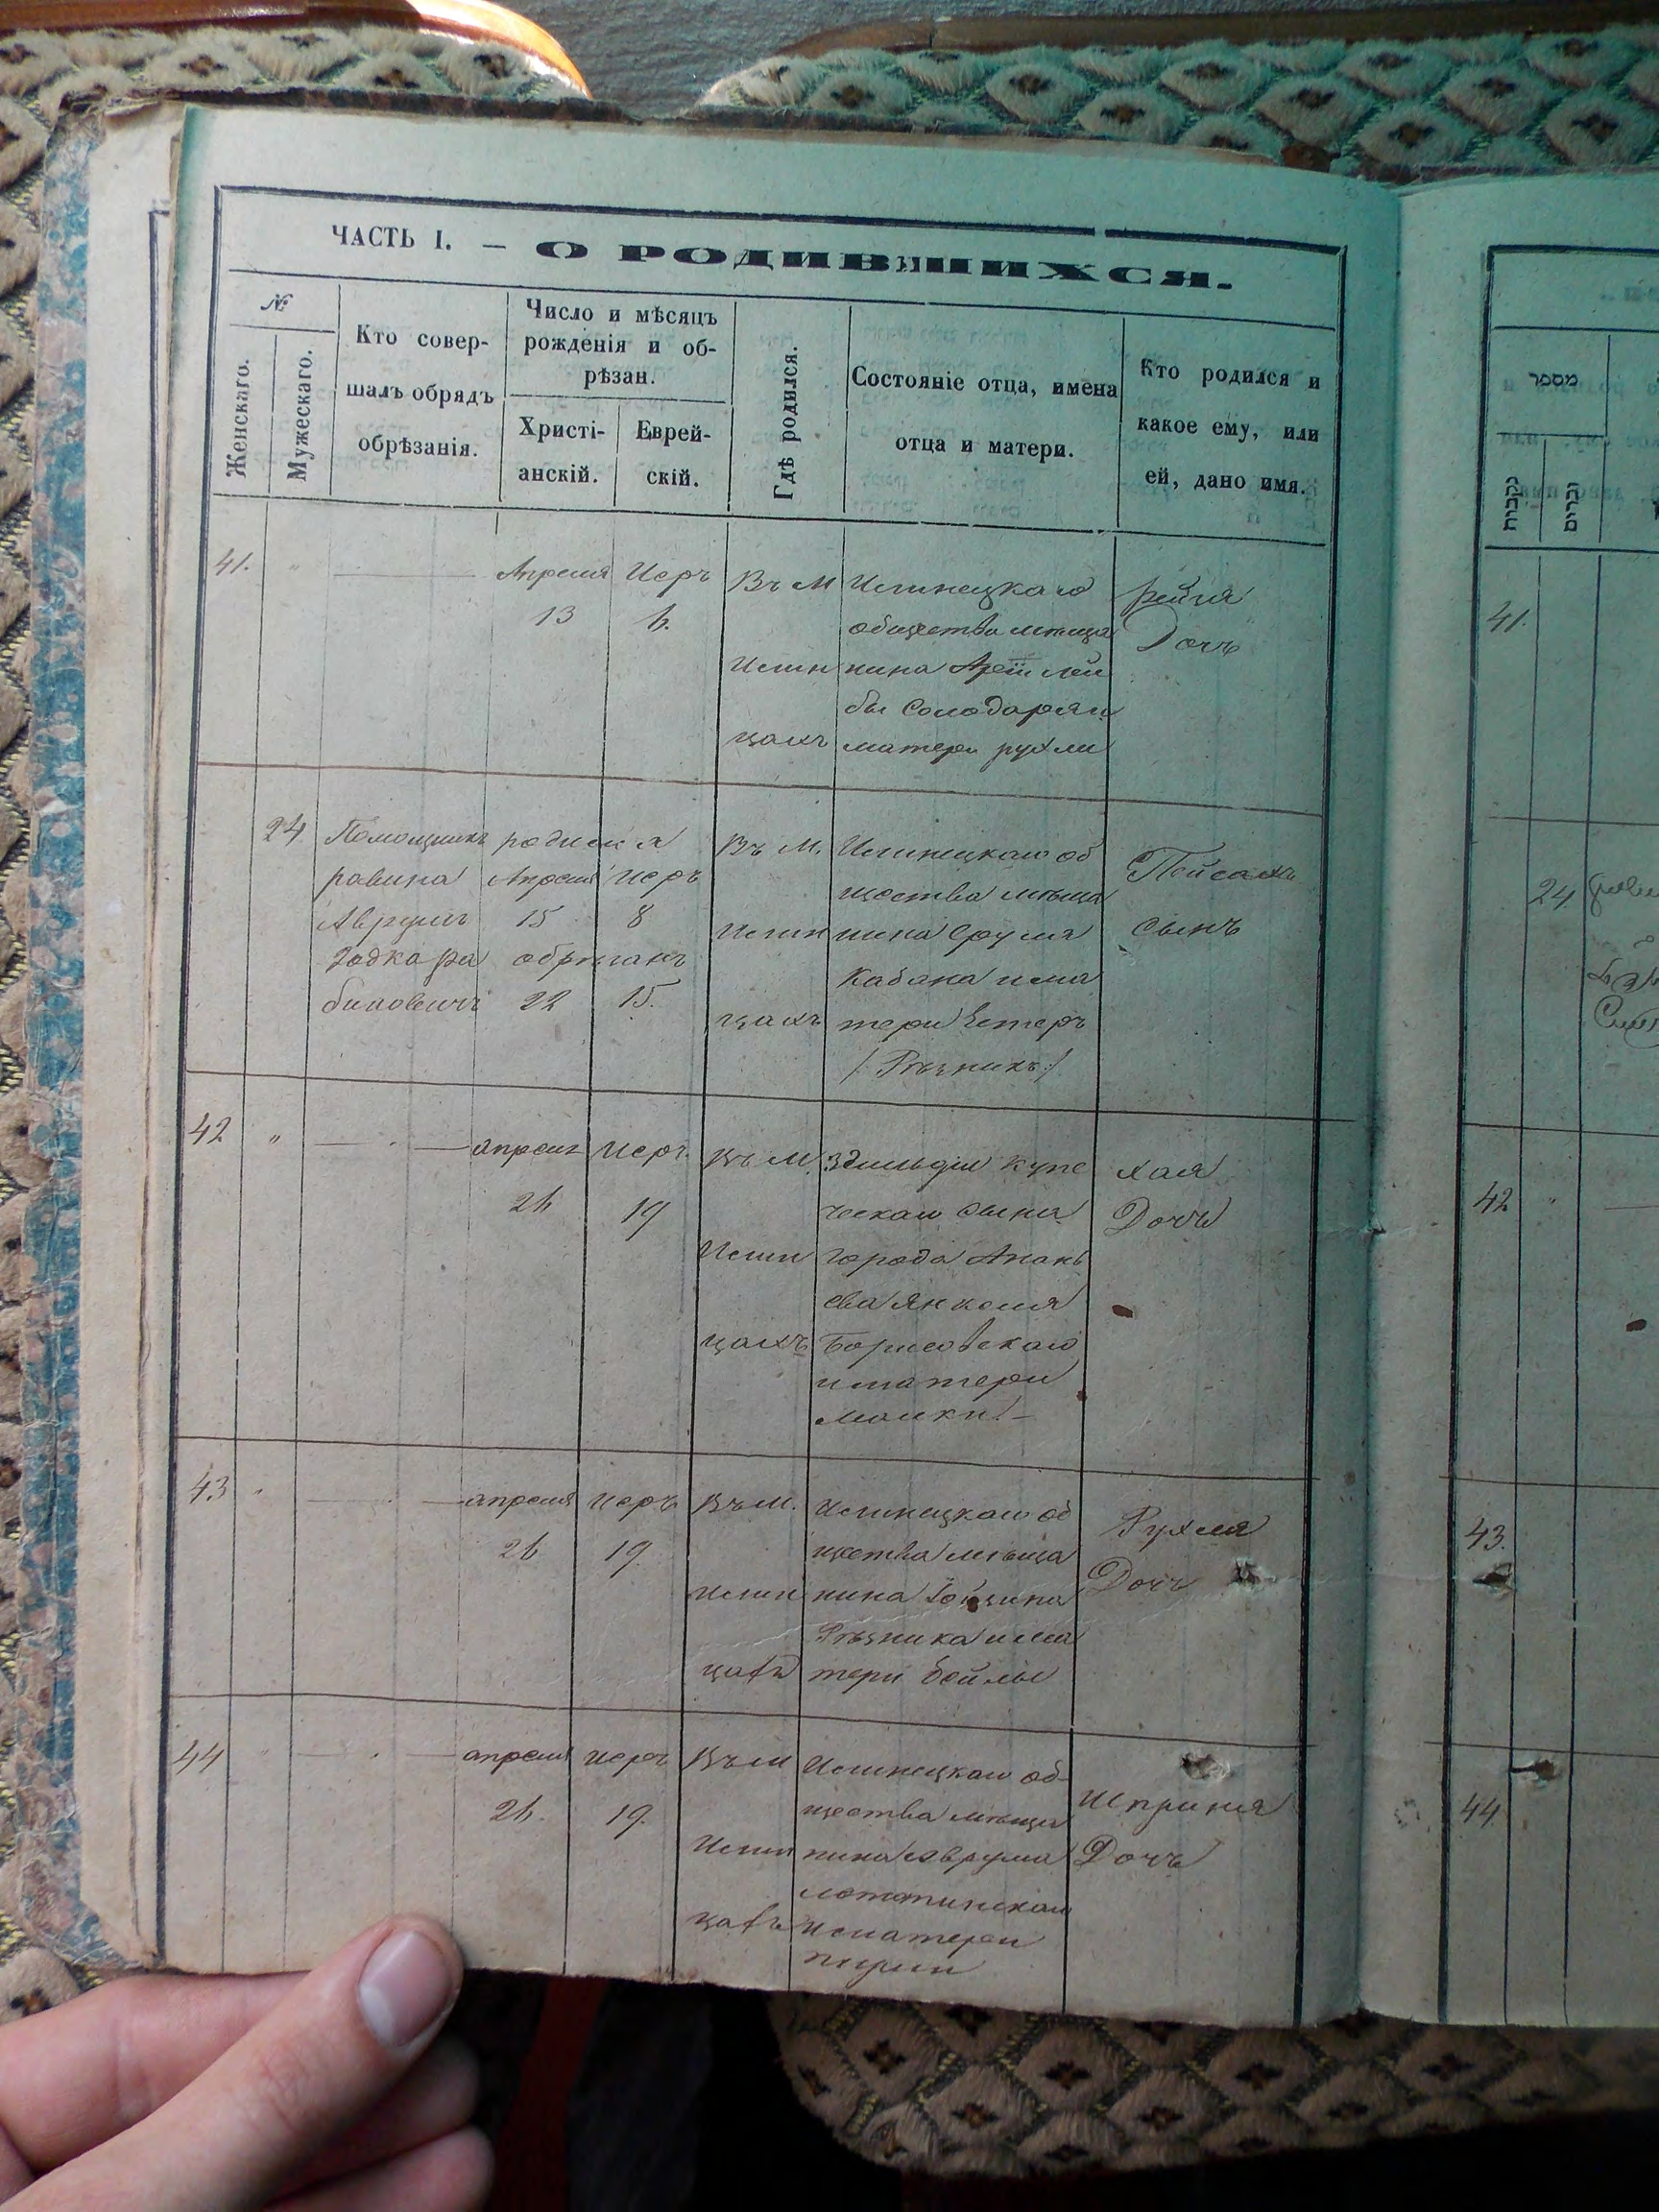 ЧАСТЬ I. — О РОДИВШИХСЯ.
№
Женскаго.
Мужескаго.
Кто совер-
шалъ обрядъ
обрѣзанія.
Число и мѣсяцъ
рожденія и об-
рѣзан.
Христі-
анскій.
Еврей-
скій.
Гдѣ родился.
Состояніе отца, имена
отца и матери.
Кто родился и
какое ему, или
ей, дано имя.
41.
Апреля
13
Иеръ
6.
Въ М
Илин
цахъ
Илинецкаго
общества мѣща
нина
Солодаря и
матери рухли
Рейзя
Дочь
24.
Помощникъ
равина
Аврумъ
биновичъ
родился
Апреля Иеръ
15 8
обрѣзанъ
22 15.
Въ М.
Илин
цахъ
Илинецкаго об
щества мѣща
нина Сруля
Кабана и ма
тери Естеръ
/Рѣзникъ/
Пейсахъ
сынъ
42
"
апреля
26
Иеръ.
19
Въ М.
Илин
цахъ
купе
ческаго сына
города Анань
ева Янкеля
Борисовскаго
и матери
Малки. –
Хая
Дочь
43
апреля
26
иеръ
19
Въ М.
Илин
цахъ
Илинецкаго об
щества мѣща
нина
Рѣзника и ма
тери Бейлы
Рухля
Дочь
44
апреля
26.
иеръ
19.
Въ М
Илин
цахъ
Илинецкаго об-
щества мѣща
нина Аврума
и матери
Шпринця
Дочь
מספר
נקבות
זכרים
41.
24.
42
43.
44